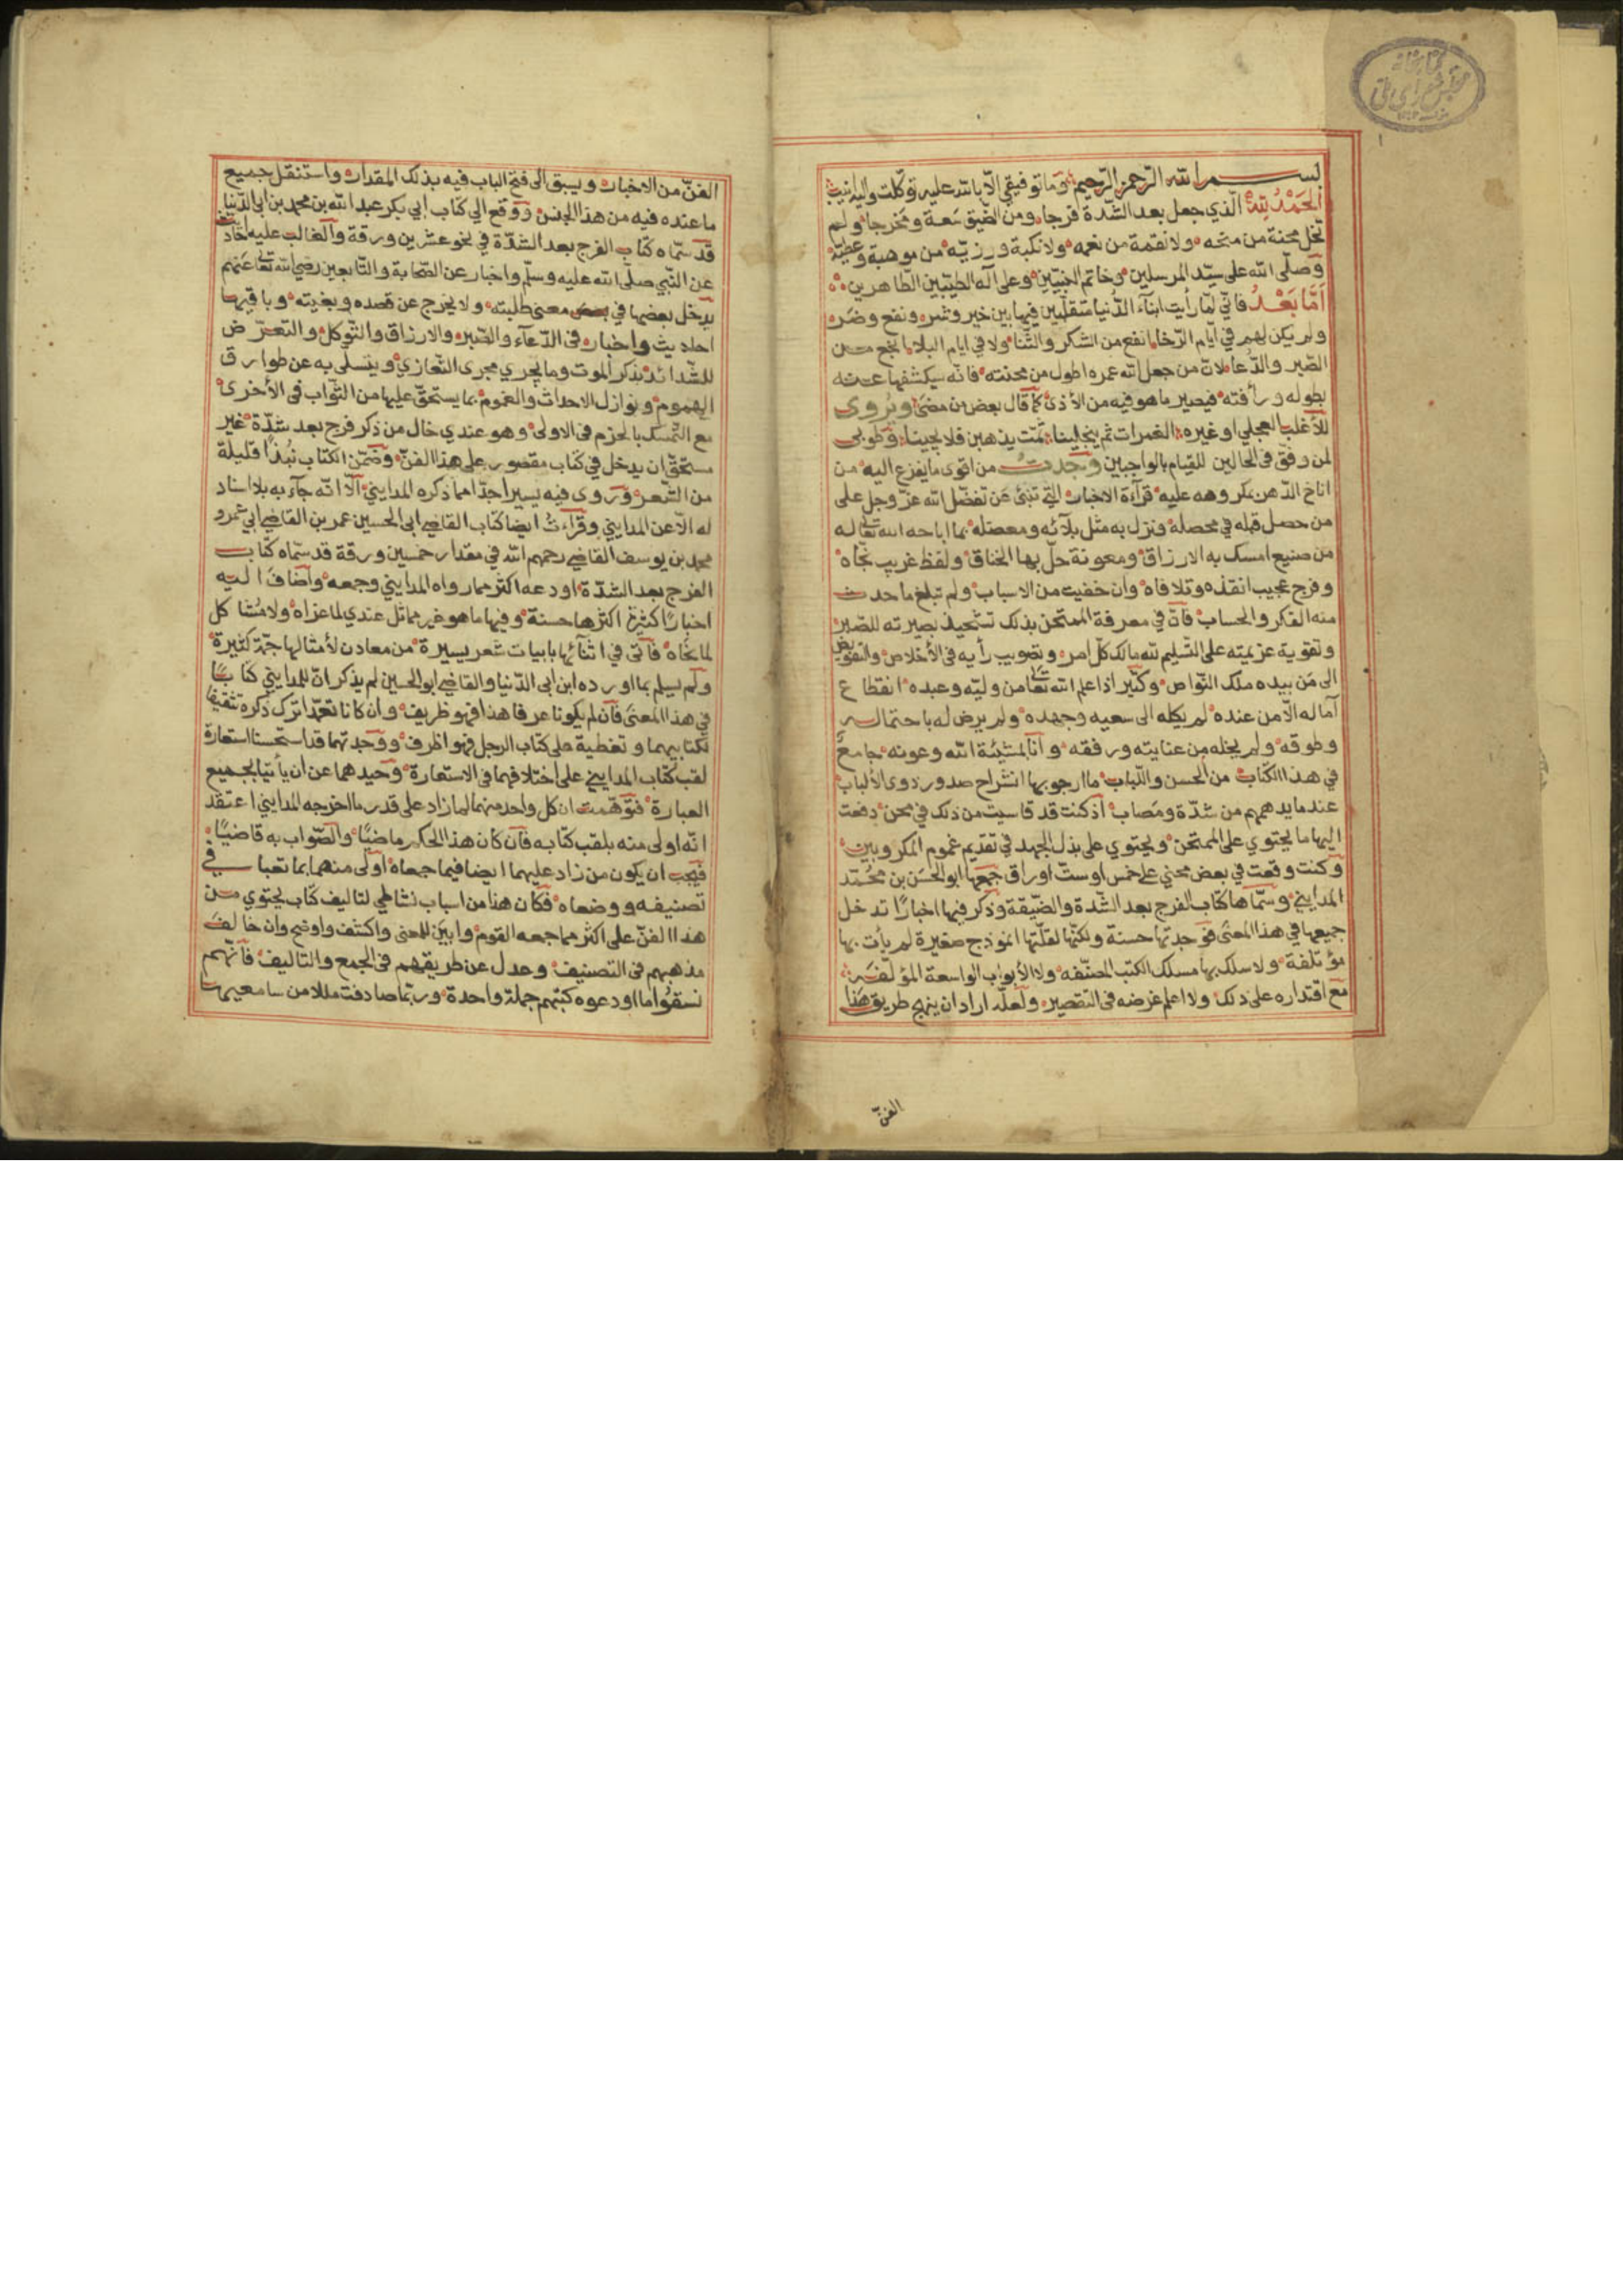 بسم الله الرحمن الرحيم وما توفيقي الا بالله عليه توكلت واليه انيب
الحمد لله الذي جعل بعد الشدة فرجا ومن الضيق سعة ومخرجا ولم
تخل محنة من منحه ولا نقمة من نعمه ولا نكبة ورزية من موهبة وعطية
وصلى الله على سيد المرسلين وخاتم النبيين وعلى آله الطيبين الطاهرين
اما بعد فاني لما رأيت ابناء الدنيا متقلبين فيها بين خير وشر ونفع وضر
ولم يكن لهم في ايام الرخا انفع من الشكر والثنا ولا في ايام البلا انجع من
الصبر والدعا لان من جعل الله عمره اطول من محنته فانه سيكشفها عنه
بطوله ورأفته فيصير ما هو فيه من الأذى كما قال بعض من مضى ويروى
للأغلب العجلي او غيره الغمرات ثم ينجلينا ثمت يذهبن فلا يجينا وطوبى
لمن وفق في الحالين للقيام بالواجبين وجدت من اقوى ما يفزع اليه من
اناخ الدهر بمكروهه عليه قرآءة الاخبار التي تنبئ عن تفضل الله عز وجل على
من حصل قبله في محصله ونزل به مثل بلآئه ومعضله بما اباحه الله تعالى له
من صنيع امسك به الارزاق ومعونة حل بها الخناق ولفظ غريب نجاه
وفرج عجيب انقذه وتلافاه وان خفيت من الاسباب ولم تبلغ ما حدث
منه الفكر والحساب فان في معرفة الممتحن بذلك تشحيذ بصيرته للصبر
وتقوية عزيمته على التسليم لله مالك كل امر وتصويب رأيه في الأخلاص والتفويض
الى من بيده ملك النواص وكثير اذا علم الله تعالى من وليه وعبده انقطاع
آماله الا من عنده لم يكله الى سعيه وجهده ولم يرض له باحتماله
وطوقه ولم يخله من عنايته ورفقه وأنا بمشيئة الله وعونه جامع
في هذا الكتاب من الحسن واللباب ما ارجو بها انشراح صدور ذوى الألباب
عند ما يدهمهم من شدة ومصاب اذ كنت قد قاسيت من ذلك في محن دفعت
اليها ما يحتوي على الممتحن ويحتوي على بذل الجهد في تقديم غموم المكروبين
وكنت وقعت في بعض محني على خمس او ست اوراق جمعها ابو الحسن بن محمد
المدايني وسماها كتاب الفرج بعد الشدة والضيقة وذكر فيها اخبارا تدخل
جميعها في هذا المعنى فوجدتها حسنة ولكنها لقلتها انموذج صغيرة لم يأت بها
مؤتلفة ولا سلك بها مسلك الكتب المصنفه ولا الأبواب الواسعة المؤلفه
مع اقتداره على ذلك ولا اعلم غرضه في التقصير ولعله اراد ان ينهج طريق هذا
الفن
الفن من الاخبار ويسبق الى فتح الباب فيه بذلك المقدار واستنقل جميع
ما عنده فيه من هذا الجنس ووقع الي كتاب ابي بكر عبد الله بن محمد بن ابي الدنيا
قد سماه كتاب الفرج بعد الشدة في نحو عشرين ورقة والغالب عليه احاديث
عن النبي صلى الله عليه وسلم واخبار عن الصحابة والتابعين رضي الله تعالى عنهم
يدخل بعضها في بعض معنى طلبته ولا يخرج عن قصده وبغيته وباقيها
احاديث واخبار في الدعآء والصبر والارزاق والتوكل والتعرض
للشدائد بذكر الموت وما يجري مجرى التعازي ويتسلى به عن طوارق
الهموم ونوازل الاحداث والغموم بما يستحق عليها من الثواب في الأخرى
مع التمسك بالحزم في الاولى وهو عندي خال من ذكر فرج بعد شدة غير
مستحق ان يدخل في كتاب مقصور على هذا الفن وضمن الكتاب نبذا قليلة
من الشعر وروى فيه يسيرا جدا مما ذكره المدايني الا انه جآء به بلا اسناد
له الا عن المدايني وقرأت ايضا كتاب القاضي ابي الحسين عمر بن القاضي ابي عمرو
محمد بن يوسف القاضي رحمهم الله في مقدار خمسين ورقة قد سماه كتاب
الفرج بعد الشدة اودعه اكثر مما رواه المدايني وجمعه واضاف اليه
اخبارا كثيرة اكثرها حسنة وفيها ما هو غير مماثل عندي لما عزاه ولا مشاكل
لما نحاه فأتى في اثنآئها بابيات شعر يسيرة من معادن لأمثالها جمة كثيرة
ولم يسلم بما اورده ابن ابي الدنيا والقاضي ابو الحسين لم يذكر ان للمدايني كتابا
في هذا المعنى فان لم يكونا عرفا هذا فهو ظريف وان كانا تعمدا ترك ذكره تثقيفا
لكتابيهما وتغطية على كتاب الرجل فهو اظرف ووجدتهما قد استحسنا استعارة
لقب كتاب المدايني على اختلافهما في الاستعارة وحيدهما عن ان يأتيا بجميع
العبارة فتوهمت ان كل واحد منهما لما زاد على قدر ما اخرجه المدايني اعتقد
انه اولى منه بلقب كتابه فان كان هذا الحكم ماضيا والصواب به قاضيا
فيجب ان يكون من زاد عليهما ايضا فيما جمعاه اولى منهما بما تعبا في
تصنيفه ووضعاه فكان هذا من اسباب نشاطي لتاليف كتاب يحتوي من
هذا الفن على اكثر مما جمعه القوم وابين للمعنى واكشف واوضح وان خالف
مذهبهم في التصنيف وعدل عن طريقهم في الجمع والتاليف فانهم
نسقوا ما اودعوه كتبهم جملة واحدة وربما صادفت مللا من سامعيها